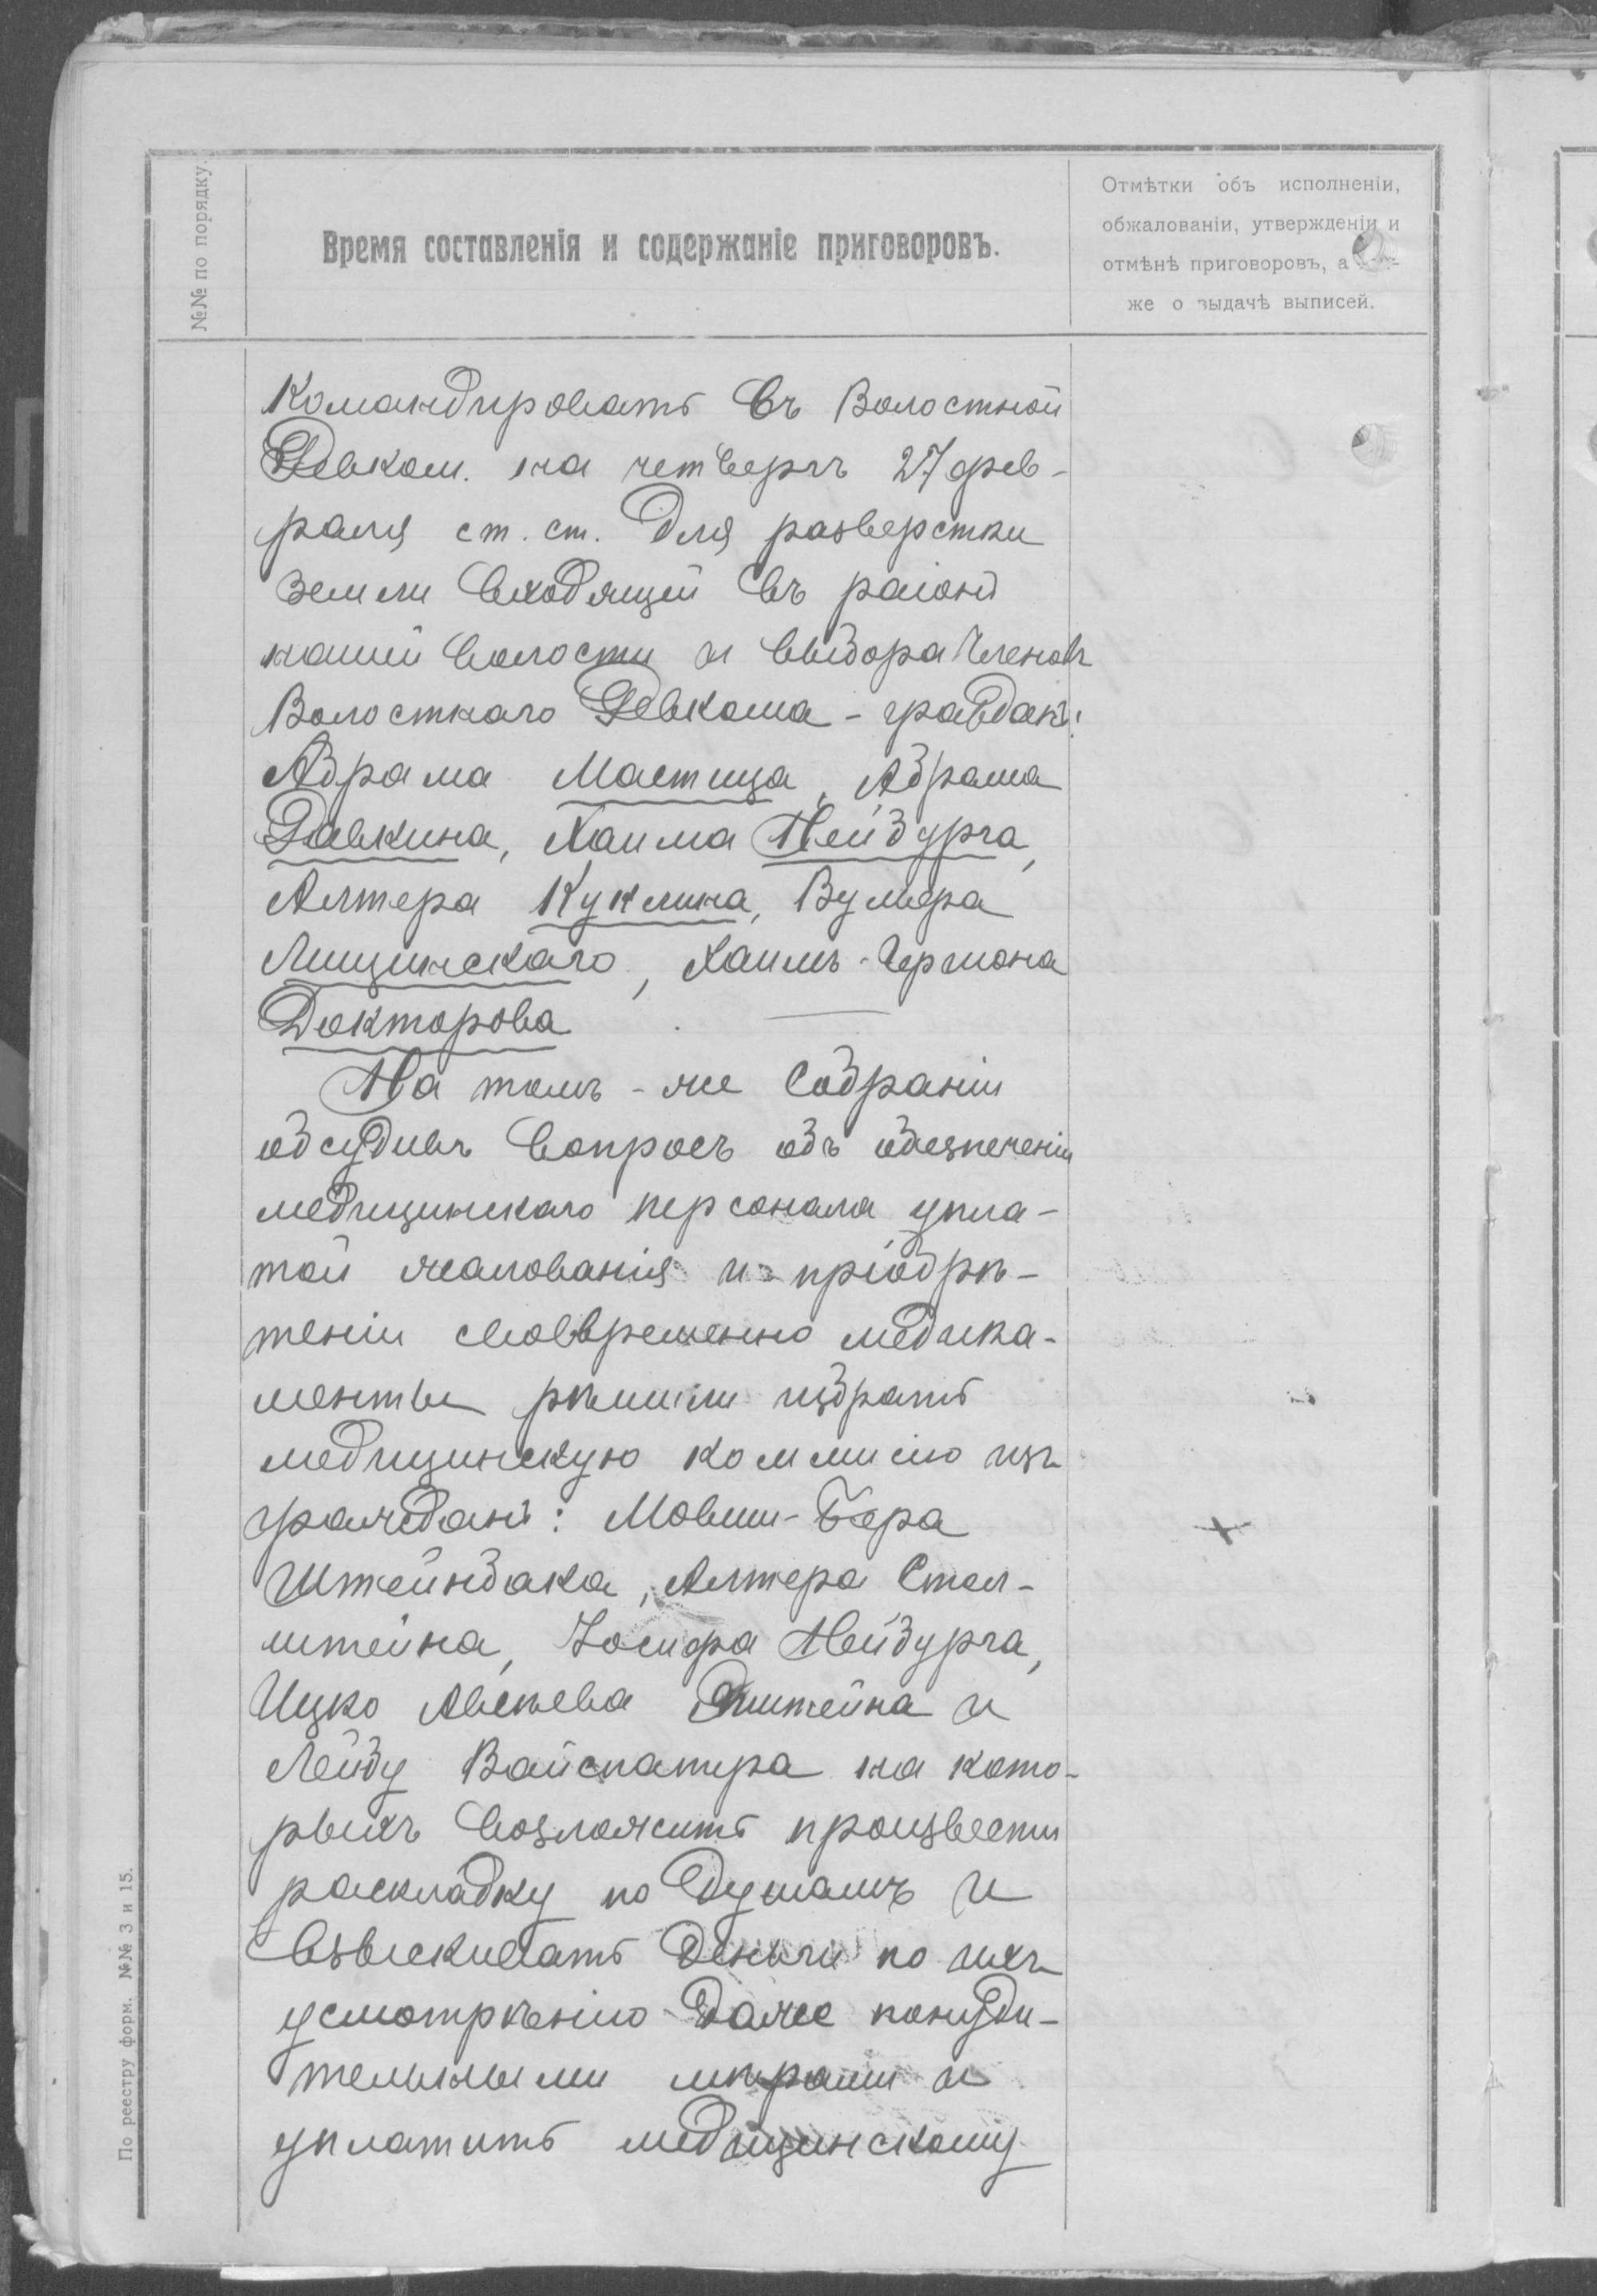 №№ по порядку.
Время составленія и содержаніе приговоровъ.
Отмѣтки объ исполненіи,
обжалованіи, утвержденіи и
отмѣнѣ приговоровъ, а
же о выдачѣ выписей.
Командировать въ Волостной
Ревком. на четвергъ 27 фев-
раля ст. ст. для разверстки
земли входящей въ район
нашей волости и выбора членовъ
Волостнаго Ревкома - граждан:
Абрама Мастица, Абрама
Равкина, Хаима Нейбурга,
Алтера Куклина, Вульфа
Лищинскаго, Хаимъ-Гершона
Докторова
На томъ-же собраніи
обсудивъ вопросъ объ обезпеченіи
медицинскаго персонала упла-
той жалованія и пріобрѣ-
теніи своевременно медика-
менты рѣшили избрать
медицинскую коммисію изъ
граждан: Мовши-Бера
Штейнбака, Алтера Стол-
штейна, Іосифа Нейбурга,
Ицко Авсѣева Эпштейна и
Лейбу Вайспапира на кото-
рыхъ возложить произвести
раскладку по душамъ и
взыскивать деньги по ихъ
усмотрѣнію даже понуди-
тельными мѣрами и
уплатить медицинскому
По реестру форм. №№ 3 и 15.